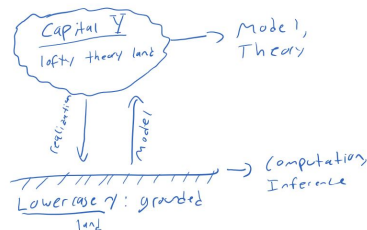 Capital Y
lofty theory land
Model,
Theory
realization
Model
Computation,
Inference
Lowercase y: grounded
land